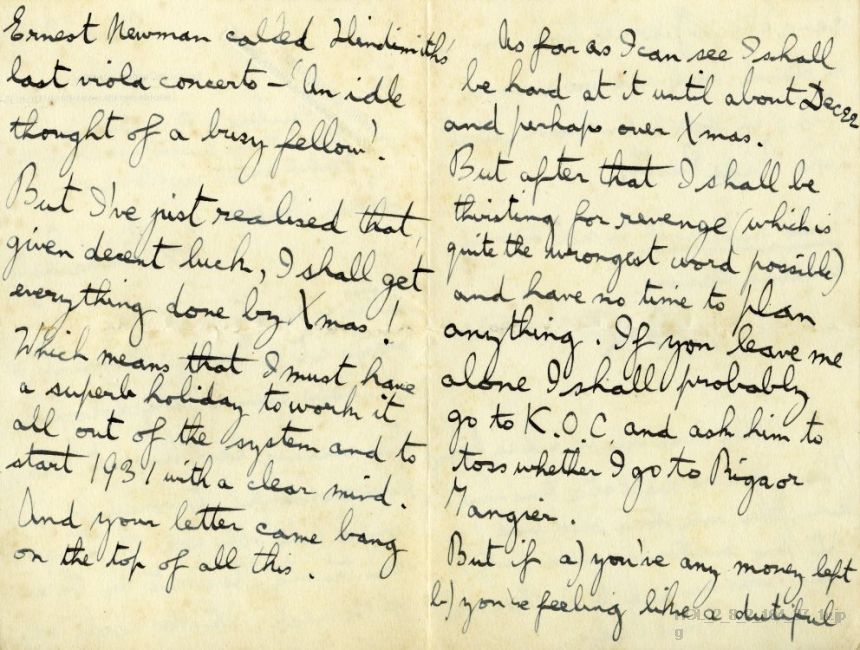 Ernest Newman called Hindimith's
last viola concerto – 'An idle
thought of a busy fellow'.
But I've just realised that,
given decent luck, I shall get
everything done by Xmas!
Which means that I must have
a superb holiday to work it
all out of the system and to
start 1931 with a clear mind.
And your letter came bang
on the top of all this.
As far as I can see I shall
be hard at it until about Dec 22
and perhaps over Xmas.
But after that I shall be
thirsting for revenge (which is
quite the wrongest word possible)
and have no time to plan
anything. If you leave me
alone I shall probably
go to K.O.C. and ask him to
toss whether I go to Riga or
Tangier.
But if a) you've any money left
b) you're feeling like a dutiful